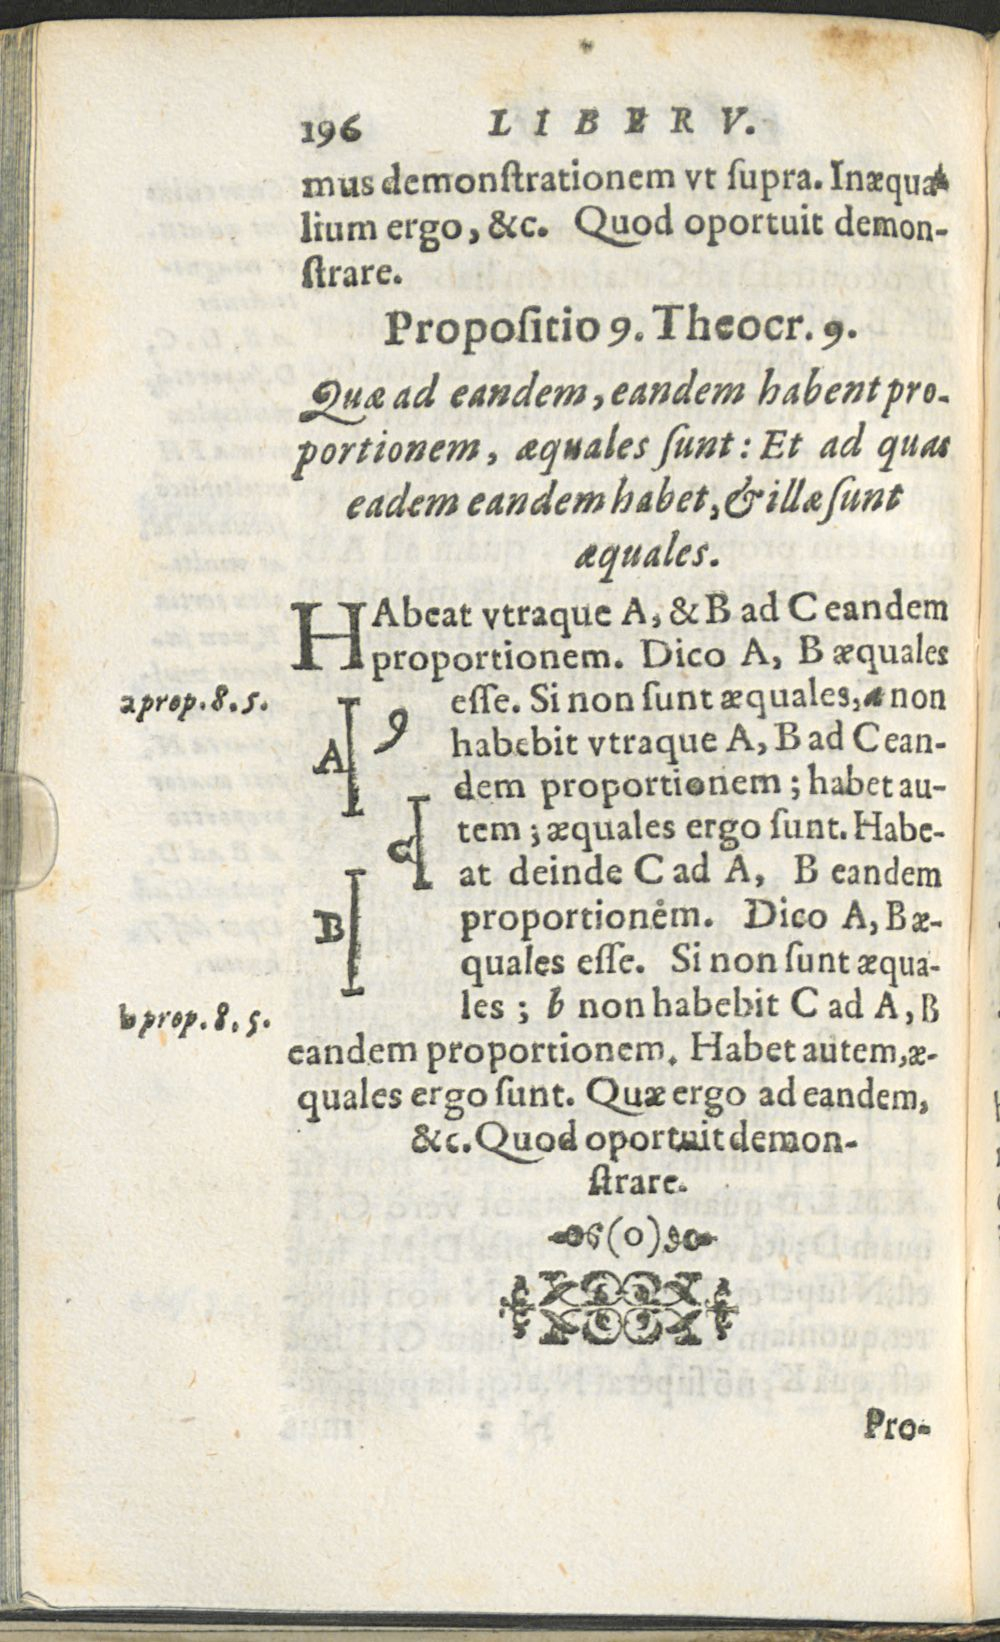 196 LIBER V.
mus demonſtrationem vt ſupra. Inæqua-
lium ergo, &c. Quod oportuit demon-
ſtrare.
Propoſitio 9. Theocr. 9.
Quæ ad eandem, eandem habent pro-
portionem, æquales ſunt: Et ad quas
eadem eandem habet, & illæ ſunt
æquales.
HAbeat vtraque A, & B ad C eandem
proportionem. Dico A, B æquales
a prop. 8. 5.
eſſe. Si non ſunt æquales, a non
9
habebit vtraque A, B ad C ean-
A
dem proportionem; habet au-
tem; æquales ergo ſunt. Habe-
C
at deinde C ad A, B eandem
B
proportionem. Dico A, B æ-
quales eſſe. Si non ſunt æqua-
les; b non habebit C ad A, B
b prop. 8. 5.
eandem proportionem. Habet autem, æ-
quales ergo ſunt. Quæ ergo ad eandem,
&c. Quod oportuit demon-
ſtrare.
(0)
Pro-